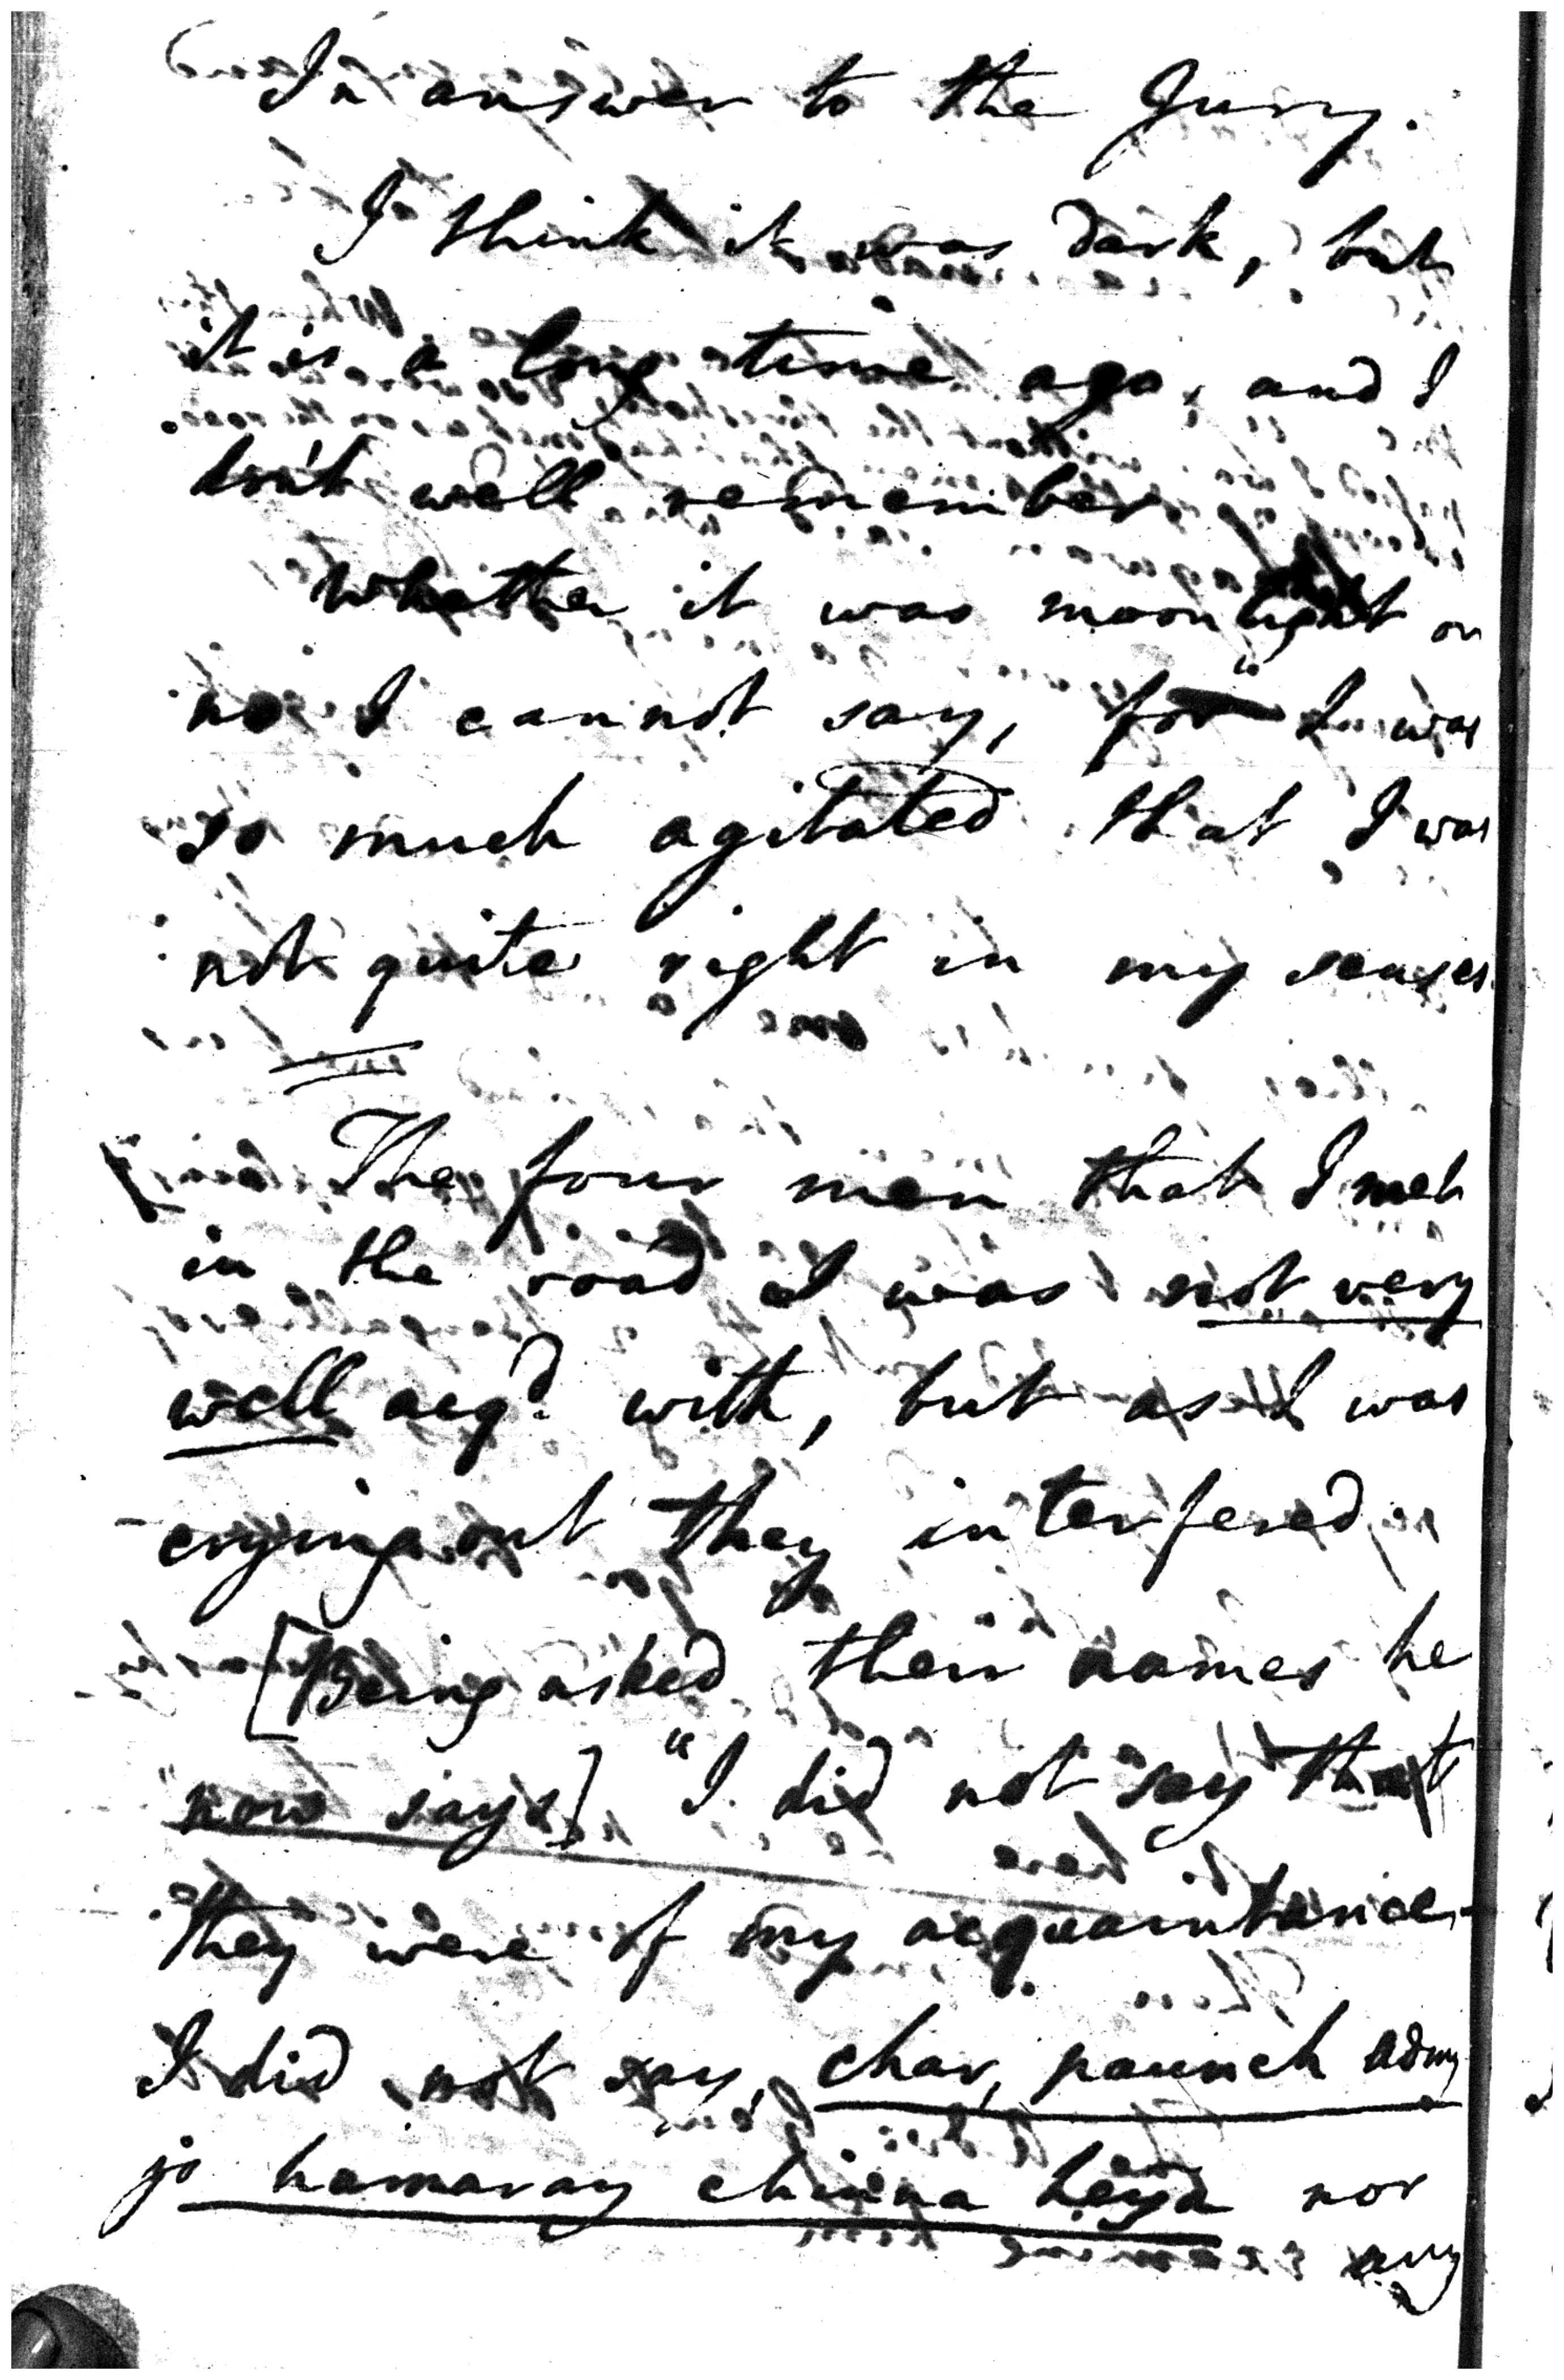 In answer to the Jury.
I think it was dark, but
it is a long time ago, and I
don't well remember.
Whether it was moonlight or
no I cannot say, for I was
so much agitated that I was
not quite right in my senses.
The four men that I met
in the road I was not very
well acqd. with, but as I was
crying out they interfered
[Being asked their names he
now says] "I did not say that
they were of my acquaintance.
I did not say, char, paunch admy
jo hamaray chiena heya nor
any